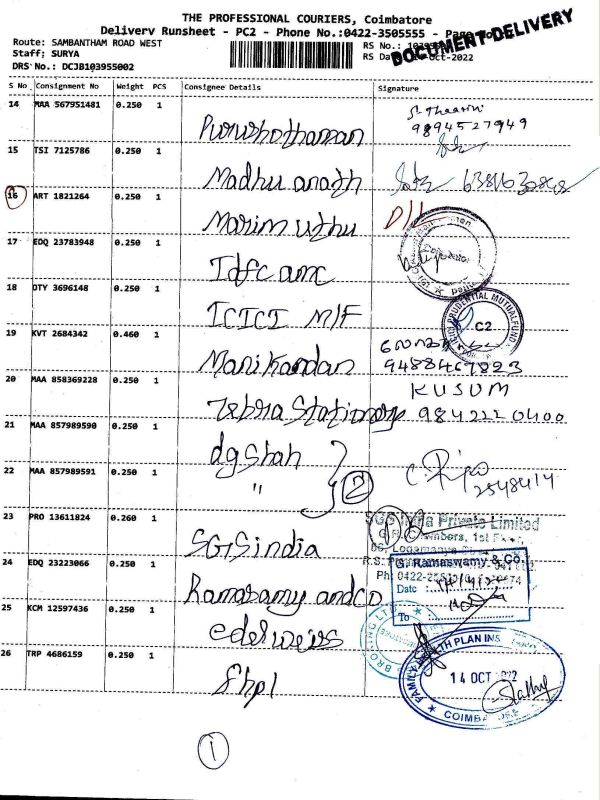 THE PROFESSIONAL COURIERS, Coimbatore
Delivery Runsheet - PC2 - Phone No.:0422-3505555 -
DOCUMENT DELIVERY
Route: SAMBANTHAM ROAD WEST
RS No.:
Staff: SURYA
RS Da Oct-2022
DRS No.: DCJB103955002
S No Consignment No Weight PCS Consignee Details Signature
14 MAA 567951481 0.250 1 Purushothaman
9894527949
15 TSI 7125786 0.250 1 Madhu anath
16 ART 1821264 0.250 1 Marimuthu
17 EDQ 23783948 0.250 1 Idfc amc
18 OTY 3696148 0.250 1 ICICI M/F
PRUDENTIAL MUTUAL FUND
C2
19 KVT 2684342 0.460 1 Manikandan
9488467823
20 MAA 858369228 0.250 1 Zebra Stationary
KUSUM
9842220400
21 MAA 857989590 0.250 1 dg Shah
22 MAA 857989591 0.250 1 " 2
2548414
23 PRO 13611824 0.260 1 SGS india
SGS India Private Limited
24 EDQ 23223066 0.250 1 Ramasamy and co
G. Ramaswamy & Co.
Ph: 0422-
Date :
To
25 KCM 12597436 0.250 1 edelweiss
BROKING LTD
26 TRP 4686159 0.250 1 fhpl
FAMILY HEALTH PLAN INS
14 OCT 2022
COIMBATORE
1